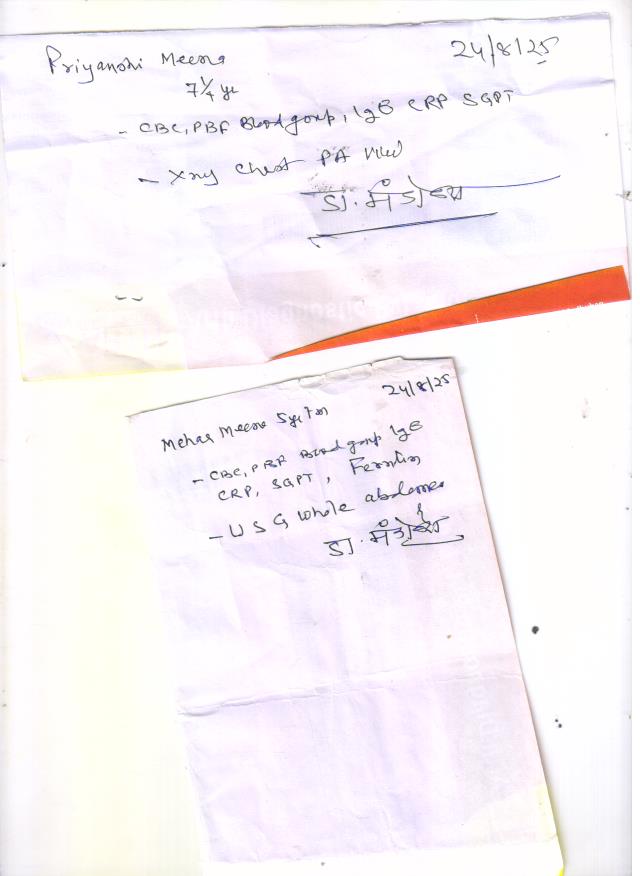 Priyanshi Meena
24/8/25
7 1/4 yr
- CBC, PBF Blood group, IgE CRP SGPT
- Xray Chest PA view
डा. मंगेश
24/8/25
Mehar Meena 5yr 7m
- CBC, PBF Blood group IgE
CRP, SGPT, Ferritin
- USG whole abdomen
डा. मंगेश